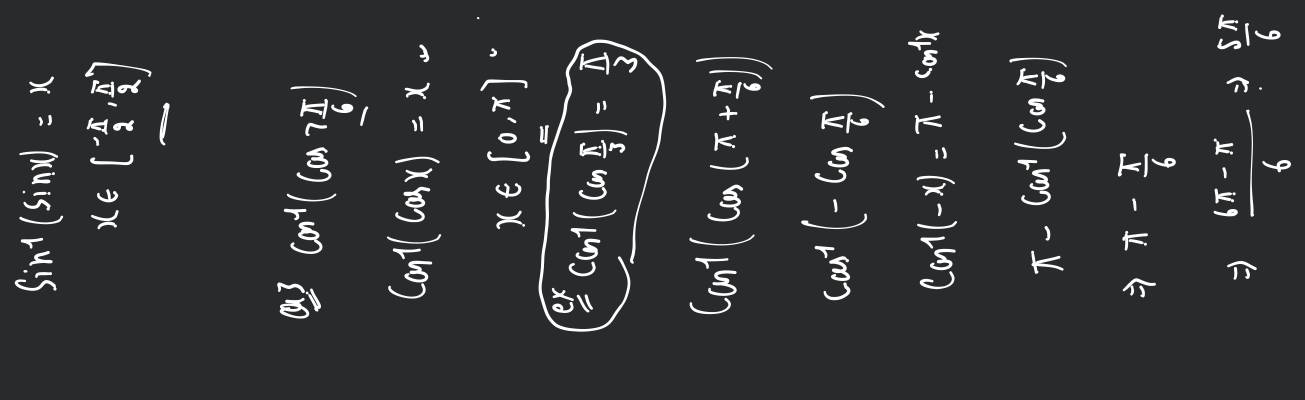 Sin⁻¹(Sinx) = x
x ∈ [-π/2, π/2]
Q3 Cos⁻¹(Cos 7π/6)
Cos⁻¹(Cosx) = x
x ∈ [0, π]
ex Cos⁻¹(Cos π/3) = π/3
Cos⁻¹(Cos(π + π/6))
Cos⁻¹(- Cos π/6)
Cos⁻¹(-x) = π - cos⁻¹x
π - Cos⁻¹(Cos π/6)
⇒ π - π/6
⇒ 6π - π/6 ⇒ 5π/6